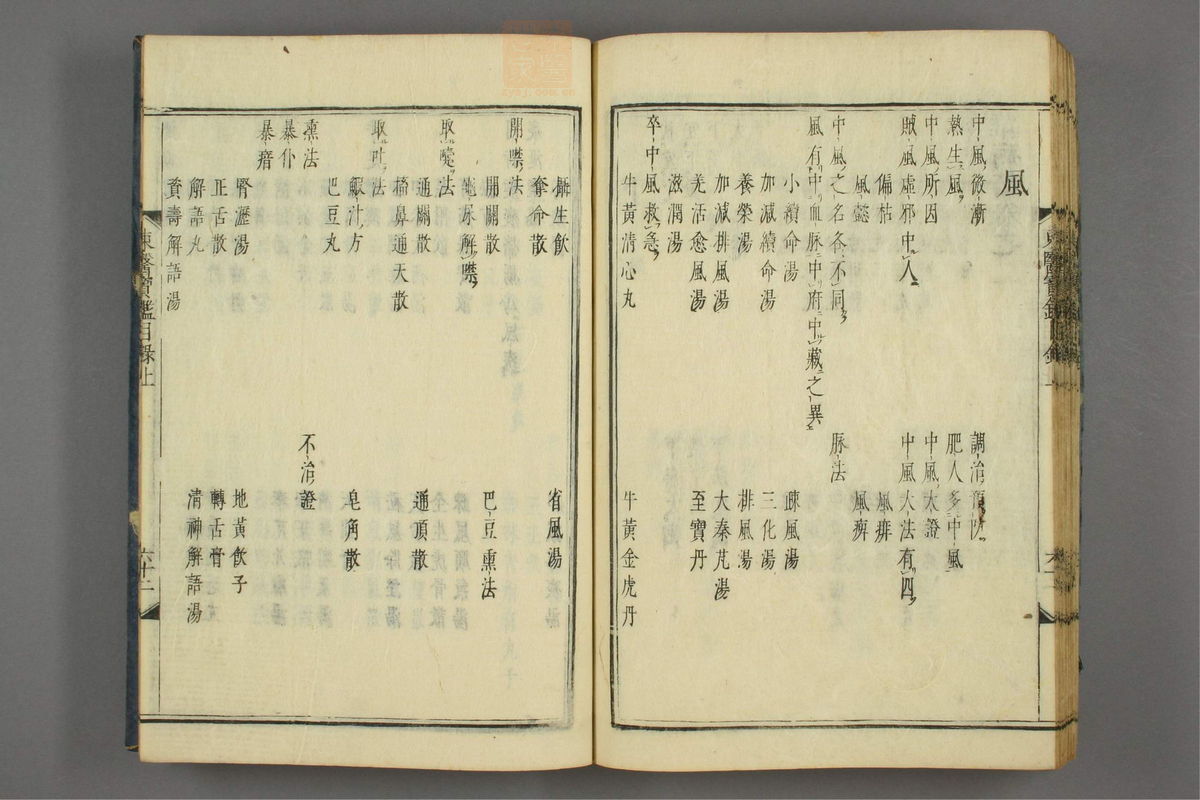 風
中風微漸 調治預防
熱生風 肥人多中風
中風所因 中風大證
賊風虛邪中人 中風大法有四
偏枯 風痱
風懿 風痹
中風之名各不同 脉法
風有中血脉中府中藏之異
小續命湯 疎風湯
加減續命湯 三化湯
養榮湯 排風湯
加減排風湯 大秦芃湯
羌活愈風湯 至寶丹
滋潤湯
卒中風救急
牛黃清心丸 牛黃金虎丹
攝生飲 省風湯
奪命散
開噤法
開關散 巴豆熏法
龜尿解噤
取嚔法
通關散 通頂散
搐鼻通天散
取吐法
鰕汁方 皂角散
巴豆丸
熏法 不治證
暴仆
暴瘖
腎瀝湯 地黃飲子
正舌散 轉舌膏
解語丸 清神解語湯
資壽解語湯
東醫寶鑑目錄上 六十二